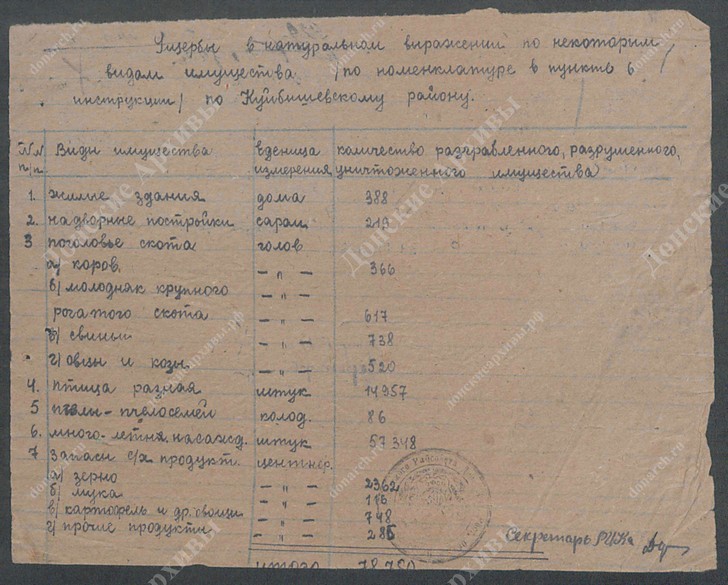 Ущербы в натуральном выражении по некоторым
видам имущества /по номенклатуре в пункте 6
инструкции/ по Куйбышевскому району.
№№ п/п. Виды имущества еденица измерения количество разграбленного, разрушенного, уничтоженного имущества
1. жилые здания дома 388
2. надворные постройки сараи 219
3 поголовье скота голов
а/ коров. — " — 366
б/ молодняк крупного — " —
рогатого скота — " — 617
в/ свиньи — " — 738
г/ овцы и козы — " — 520
4. птица разная штук 14957
5 пчелы-пчелосемей колод. 86
6. много-летня. насажд. штук 57348
7 Запасы с/х продукт. центнер.
а/ зерно — " — 2362
б/ мука — " —
в/ картофель и др. овощи — " — 748
г/ прочие продукты — " — 285
Секретарь РИКа
итого
Донские Архивы
donarch.ru
донскиеархивы.рф